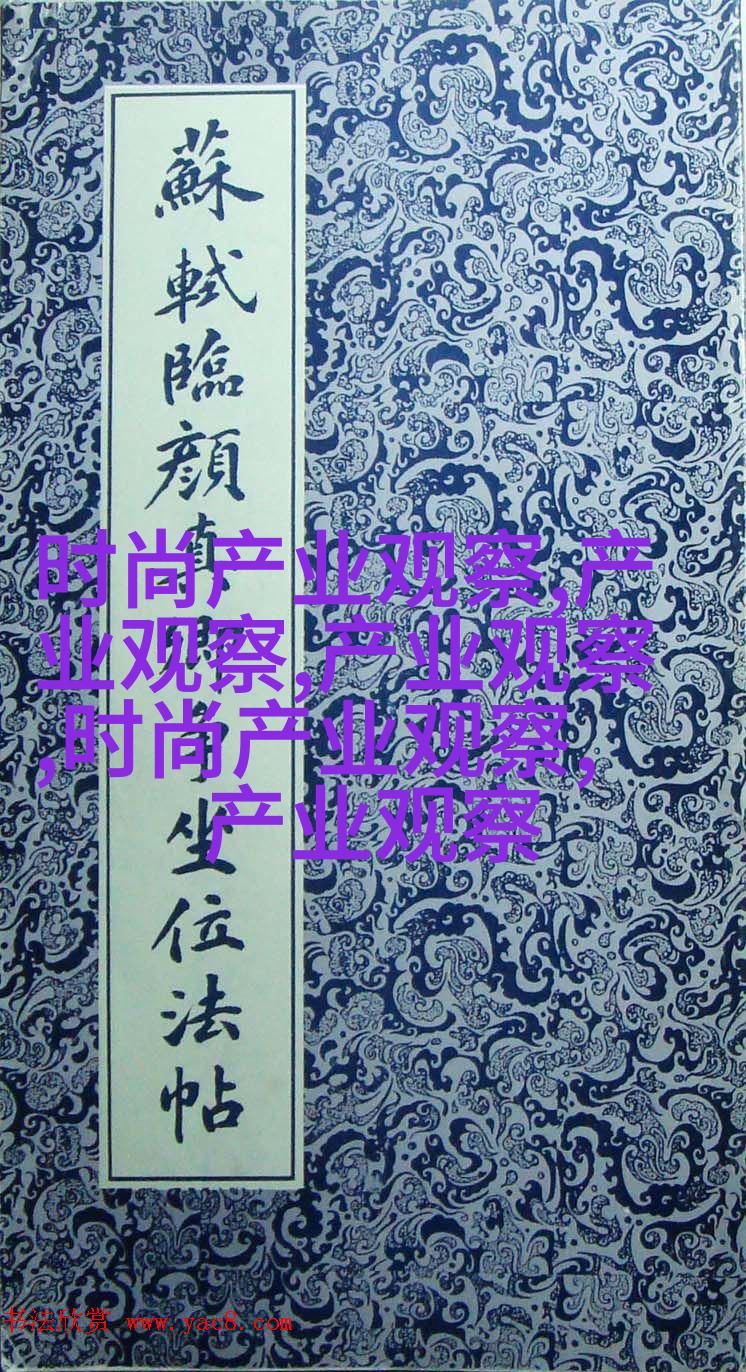 蘇軾臨顔真卿争坐位法帖
时尚产业观察,产
业观察,产业观察
,时尚产业观察,
产业观察
书法欣赏 www.yac8.com